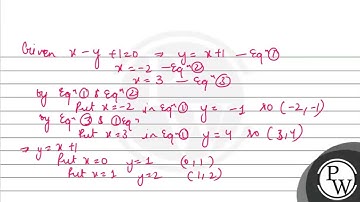 Given x - y + 1 = 0 ⇒ y = x + 1 — Eqⁿ ①
x = -2 — Eqⁿ ②
x = 3 — Eqⁿ ③
by Eqⁿ ① & Eqⁿ ②
Put x = -2 in Eqⁿ ① y = -1 so (-2, -1)
by Eqⁿ ③ & ① Eqⁿ
Put x = 3 in Eqⁿ ① y = 4 so (3, 4)
⇒ y = x + 1
Put x = 0 y = 1 (0, 1)
Put x = 1 y = 2 (1, 2)
PW